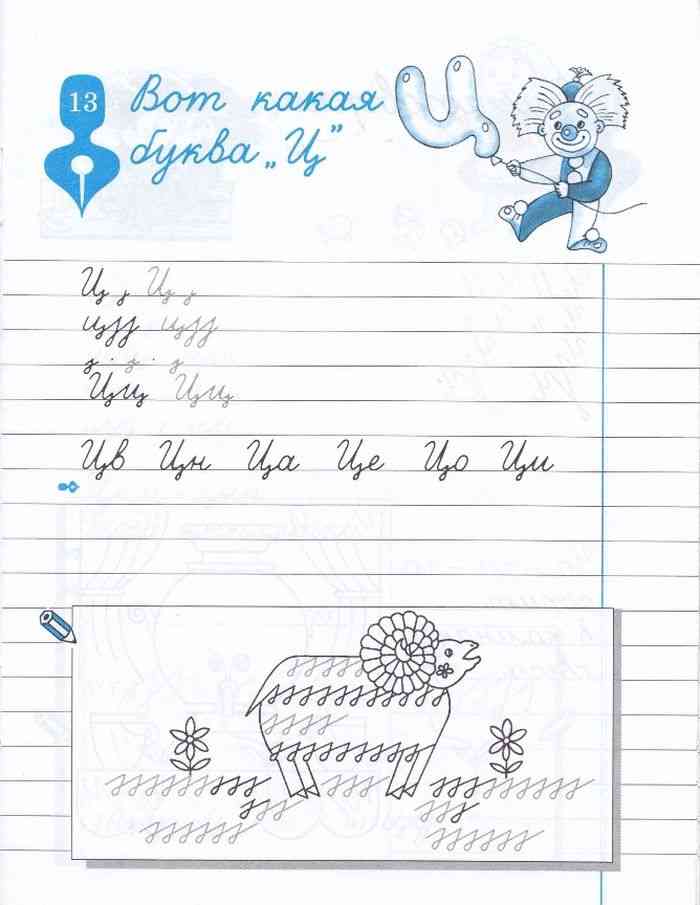 13
Вот какая
буква „Ц”
Ц
Ц Ц
ц ц
Цц Цц
Цв Цн Ца Це Цо Ци